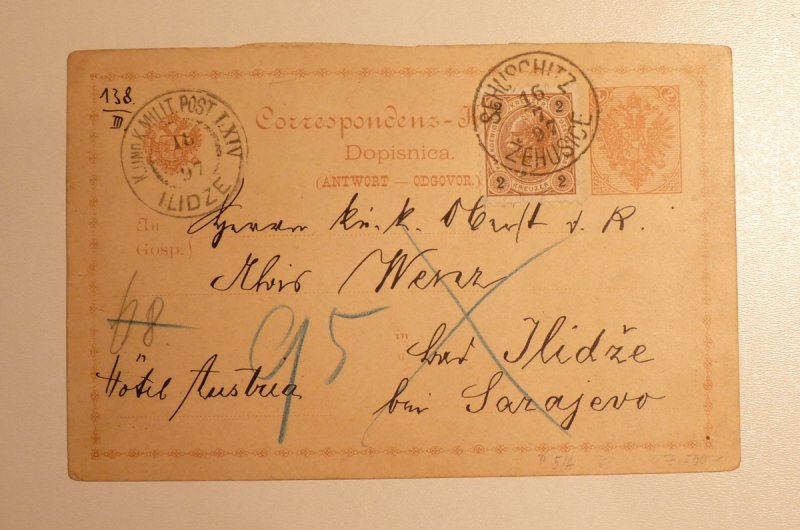 138.
III
K. UND K. MILIT. POST LXIV
18
97
ILIDZE
SEHUSCHITZ
16
97
ZEHUSICE
2 KREUZER 2
2 2
Correspondenz-
Dopisnica.
(ANTWORT — ODGOVOR.)
An
Gosp.
Herrn k.u.k. Oberst d. R.
Alois Wenz
68
95
in
u
bad Ilidže
Hôtel Austria
bei Sarajevo